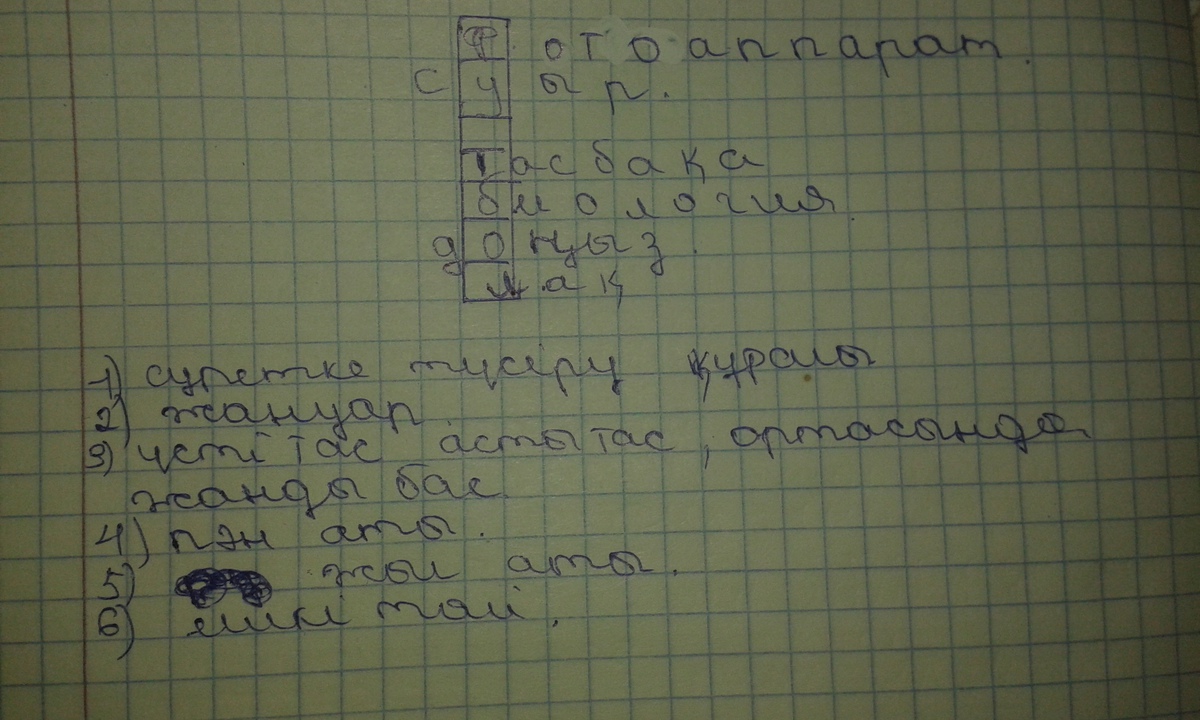 Фотоаппарат.
суыр.
тасбақа
биология.
доңыз.
лақ
1) суретке түсіру құралы
2) жануар
3) үсті тас асты тас, ортасында
жанды бас
4) пән аты.
5) жыл аты.
6) ешкі төлі.